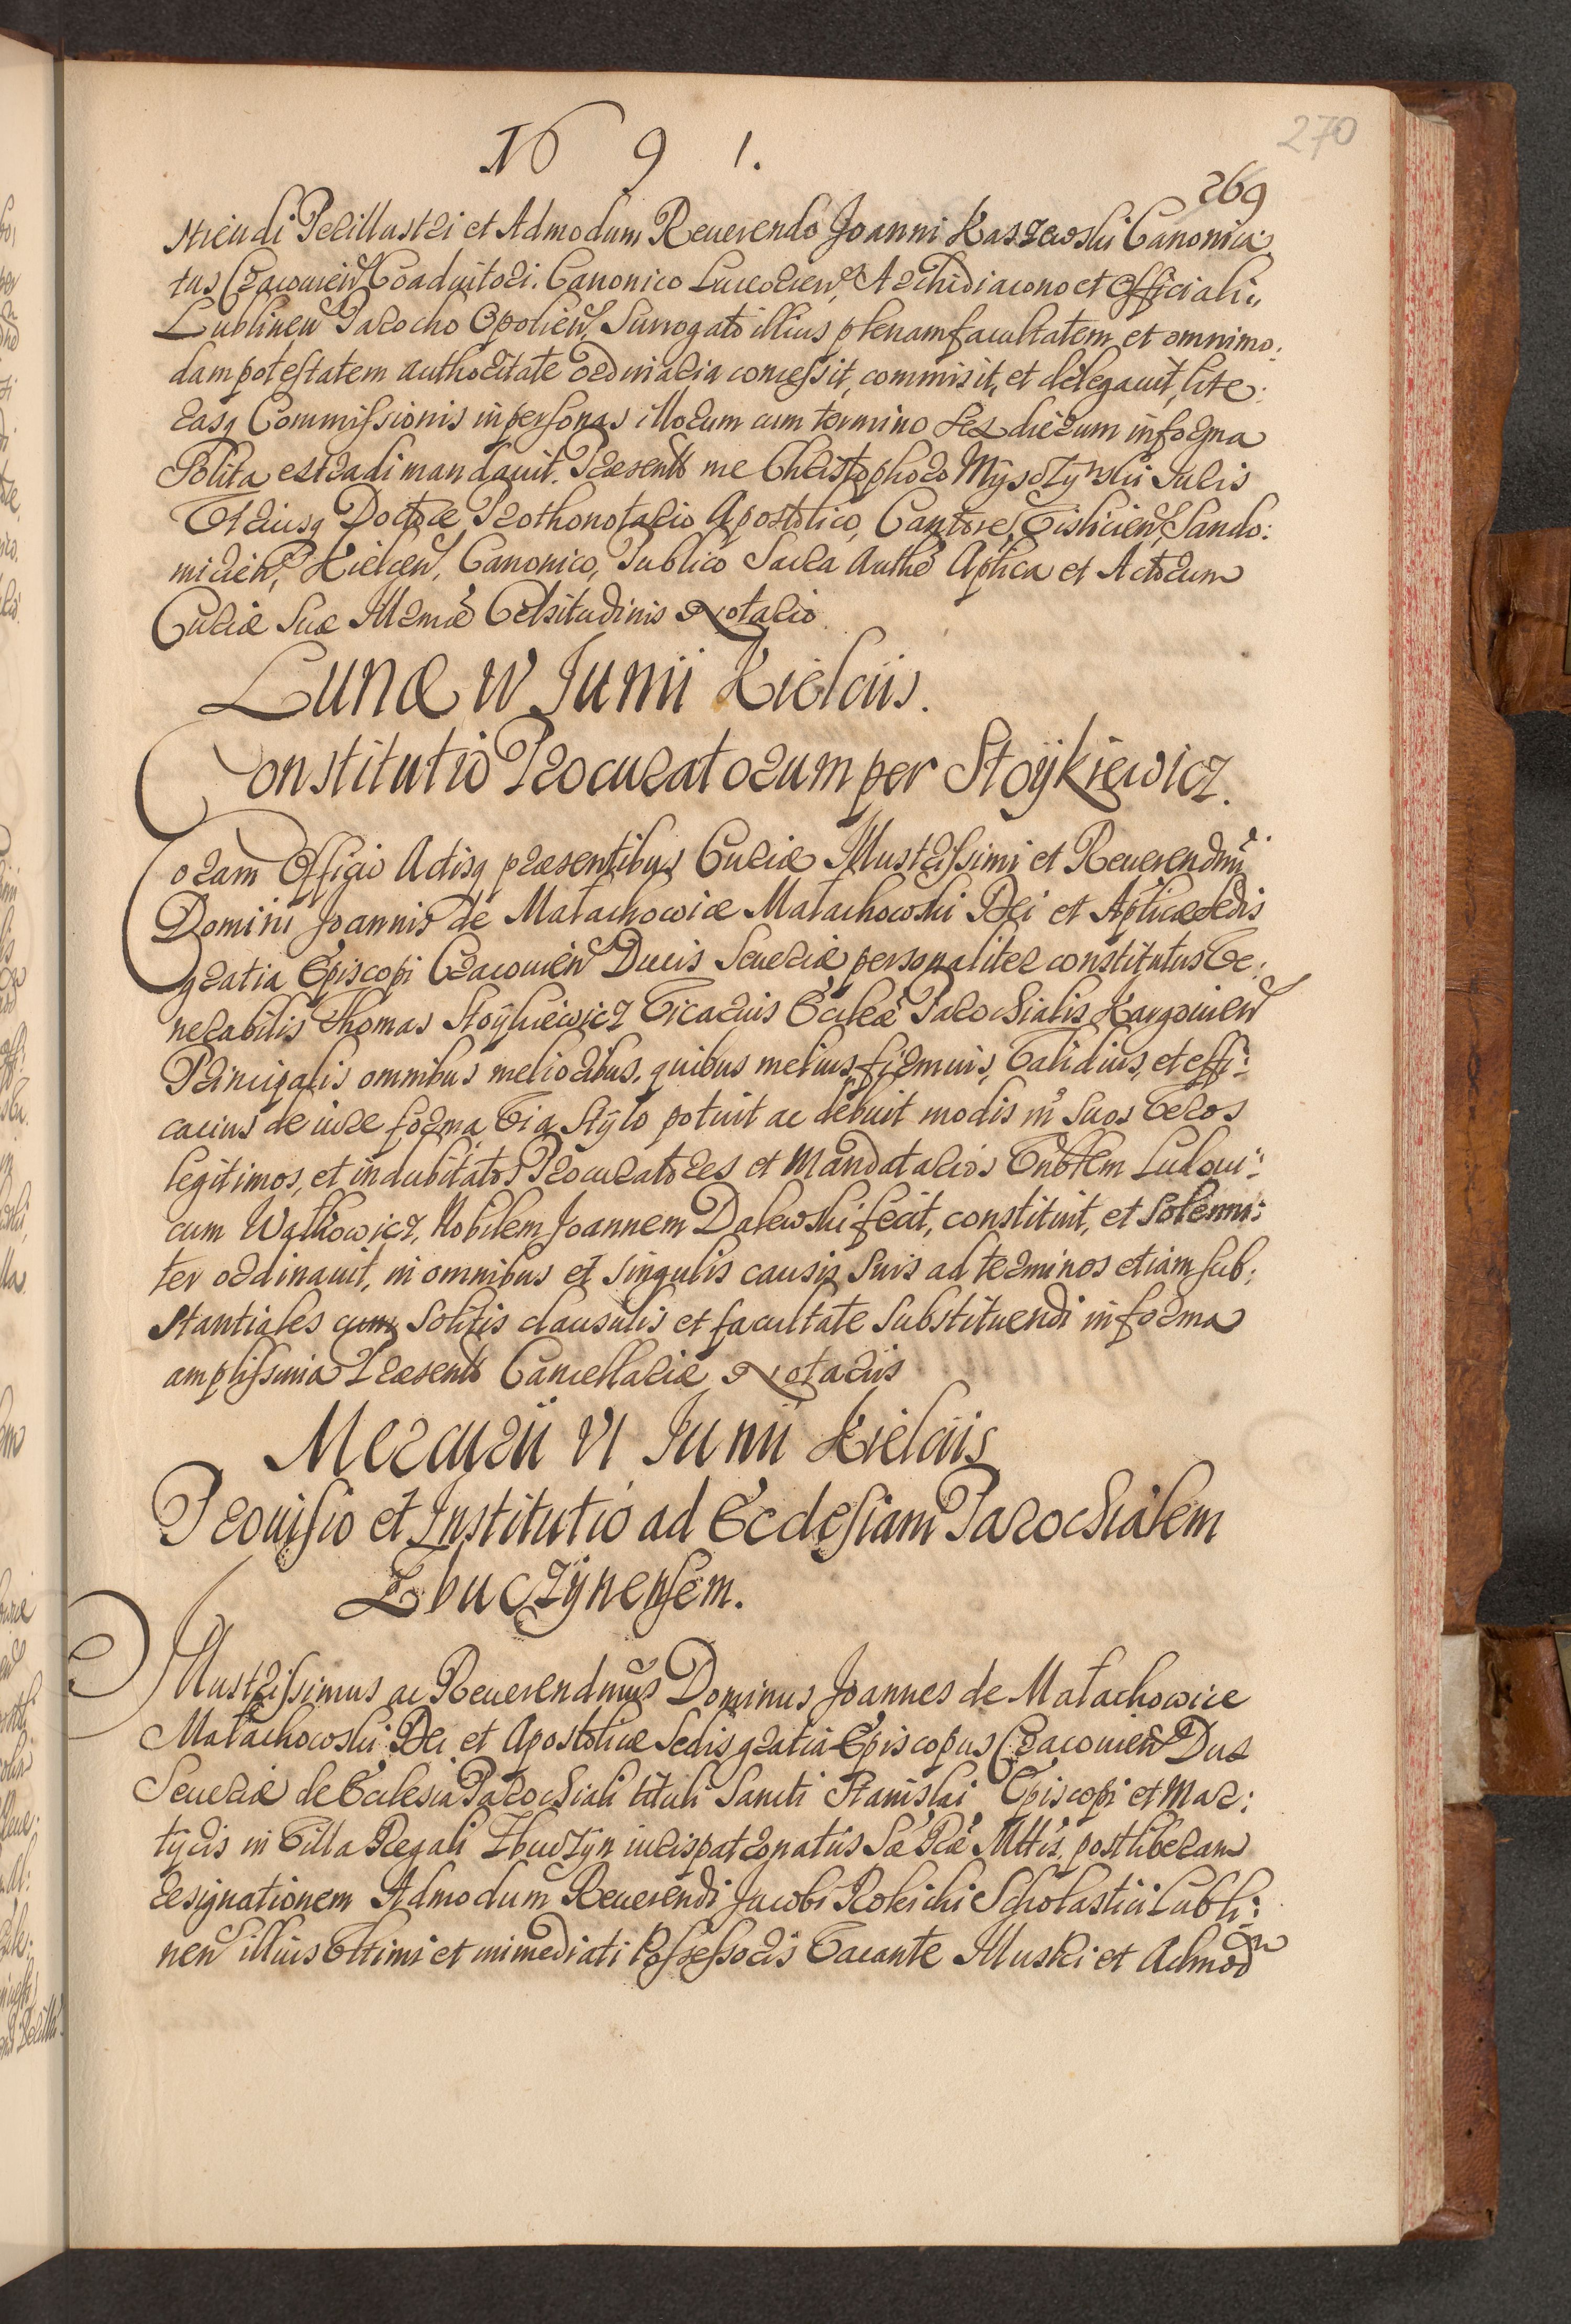 1691.
270
269
struendi Perillustri et Admodum Reuerendo Joanni Kaszewski Canonica:
tus Cracouien Coadiutori. Canonico Luceorien, Archidiacono et Officiali,
Lublinen Parocho Opolien, Surrogato illius plenam facultatem et omnimo:
dam potestatem authoritate ordinaria concessit, commisit, et delegauit, lite:
rasq Commissionis in personas illorum cum termino sex dierum in forma
Polita extradi mandauit. Praesentt me Christophoro Mysozynski Iuris
Vtriusq Doctore Prothonotario Apostolico, Cantore Vislicien, Sando:
mirien, Kielcen, Canonico, Publico Sacra Authe Aplica et Actorum
Curiae Suae Illmae Celsitudinis Notario
Lunae IV Junii Kielciis.
Constitutio Procuratorum per Stoÿkiewicz.
Coram Officio Actisq praesentibus Curiae Illustrissimi et Reuerendmi
Domini Joannis de Małachowice Małachowski Dei et Aplicae Sedis
gratia Episcopi Cracouien Ducis Seueriae personaliter constitutus Ve:
nerabilis Thomas Stoÿkiewicz Vicarius Ecclae Parochialis Kargouien
Principalis omnibus melioribus, quibus melius, firmius, Validius, et effi:
cacius de iure forma Via Stÿlo potuit ac debuit modis in Suos Veros
legitimos, et indubitatos Procuratores et Mandatarios Enbtem Ludoui:
cum Wątkowicz, Nobilem Joannem Dalewski fecit, constituit, et Solenni:
ter ordinauit, in omnibus et singulis causis Suis ad terminos etiam sub:
stantiales cum Solitis clausulis et facultate Substituendi in forma
amplissima Praesentt Cancellariae Notariis
Mercurii VI Junii Kielciis
Prouisio et Institutio ad Ecclesiam Parochialem
Zbuczÿnensem.
Illustrissimus ac Reuerendmus Dominus Joannes de Małachowice
Małachowski Dei et Apostolicae Sedis gratia Episcopus Cracouien Dux
Seueriae de Ecclesia Parochiali tituli Sancti Stanislai Episcopi et Mar:
tyris in Villa Regali Zbuczÿn iurispatronatus Sae Rae Mttis, post liberam
resignationem Admodum Reuerendi Jacobi Rokicki Scholastici Lubli:
nen illius Vltimi et immediati Possessoris Vacante Illustri et Admod